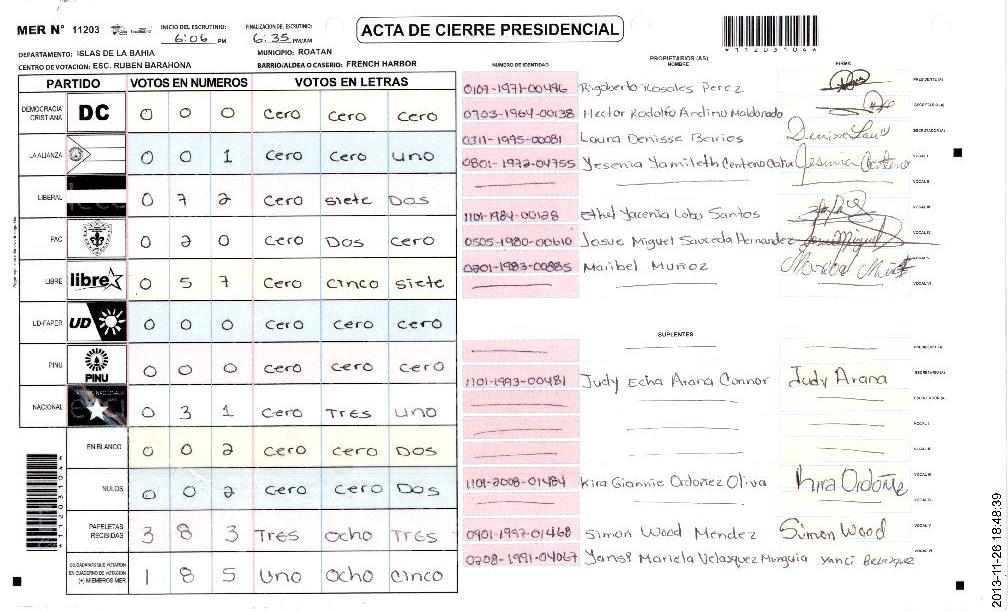 MER N° 11203
INICIO DEL ESCRUTINIO: 6:06 PM
FINALIZACION DEL ESCRUTINIO: 6:35 PM/AM
ACTA DE CIERRE PRESIDENCIAL
1 1 2 0 3 1 0 4
DEPARTAMENTO: ISLAS DE LA BAHIA
MUNICIPIO: ROATAN
CENTRO DE VOTACION: ESC. RUBEN BARAHONA
BARRIO/ALDEA O CASERIO: FRENCH HARBOR
PARTIDO VOTOS EN NUMEROS VOTOS EN LETRAS
DEMOCRACIA CRISTIANA DC 0 0 0 cero cero cero
LA ALIANZA 0 0 1 cero cero uno
LIBERAL 0 7 2 cero siete Dos
PAC 0 2 0 cero Dos cero
LIBRE libre 0 5 7 cero cinco siete
UD-FAPER UD 0 0 0 cero cero cero
PINU PINU 0 0 0 cero cero cero
NACIONAL 0 3 1 cero Tres uno
EN BLANCO 0 0 2 cero cero Dos
NULOS 0 0 2 cero cero Dos
PAPELETAS RECIBIDAS 3 8 3 Tres ocho Tres
CIUDADANOS QUE VOTARON EN CUADERNO DE VOTACION (+) MIEMBROS MER 1 8 5 uno ocho cinco
PROPIETARIOS (AS)
NUMERO DE IDENTIDAD NOMBRE FIRMA
0107-1971-00496 Rigoberto Rosales Perez PRESIDENTE(A)
0703-1964-00138 Hector Rodolfo Andino Maldonado SECRETARIO(A)
0311-1995-00081 Laura Denisse Berrios ESCRUTADOR(A)
0801-1972-04755 Yesenia Yamileth Centeno VOCAL I
VOCAL II
1101-1984-00128 Ethel Yacenia Lobo Santos VOCAL III
0505-1980-00610 Josue Miguel Sauceda Hernandez VOCAL IV
0201-1983-00885 Maribel Muñoz VOCAL V
VOCAL VI
SUPLENTES
PRESIDENTE(A)
1101-1993-00481 Judy Echa Arana Connor Judy Arana SECRETARIO(A)
ESCRUTADOR(A)
VOCAL I
VOCAL II
1101-2008-01484 Kira Giannie Ordoñez Oliva Kira Ordoñez VOCAL III
VOCAL IV
0901-1997-01468 Simon Wood Mendez Simon Wood VOCAL V
0208-1991-04067 Yansi Mariela Velasquez Munguia VOCAL VI
2013-11-26 18:48:39